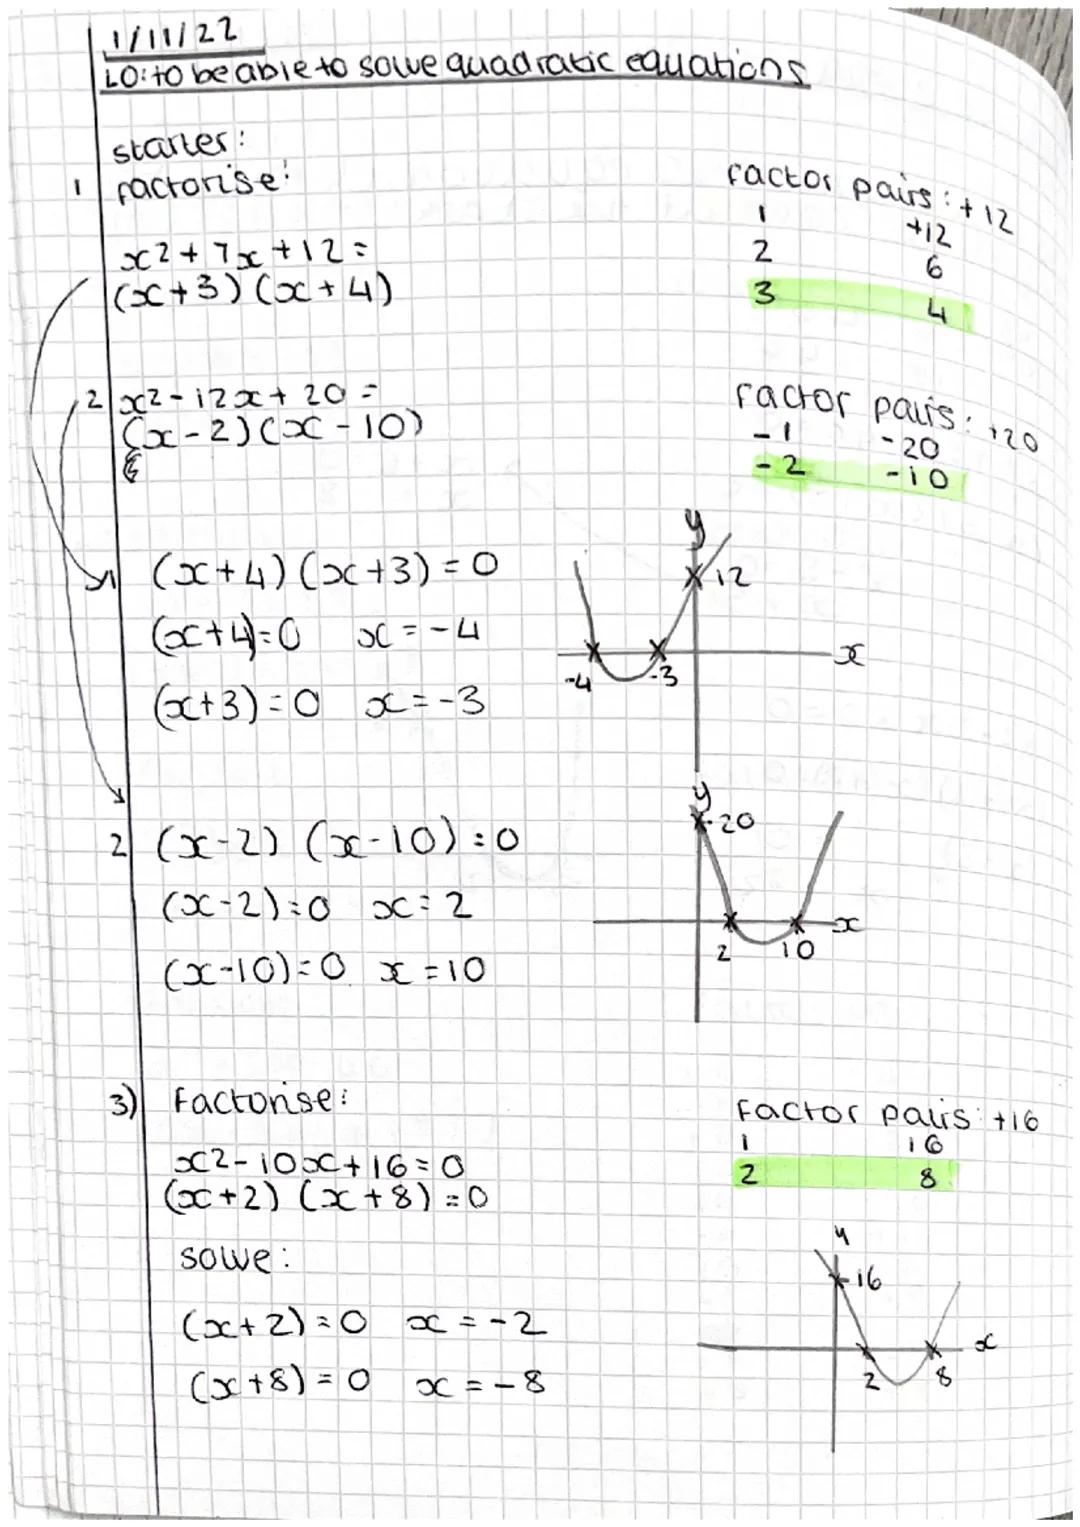 1/11/22
LO: to be able to solve quadratic equations
starter:
1 factorise:
x2 + 7x + 12 =
(x+3) (x+4)
factor pairs: +12
1 +12
2 6
3 4
2 x2 - 12x + 20 =
(x-2) (x-10)
factor pairs: +20
-1 -20
-2 -10
1 (x+4) (x+3) = 0
(x+4)=0 x = -4
(x+3) = 0 x = -3
y
12
x
-4 -3
2 (x-2) (x-10) = 0
(x-2) = 0 x = 2
(x-10) = 0 x = 10
y
20
x
2 10
3) Factorise:
x2 - 10x + 16 = 0
(x+2) (x+8) = 0
Factor pairs: +16
1 16
2 8
solve:
(x+2) = 0 x = -2
(x+8) = 0 x = -8
y
16
x
2 8